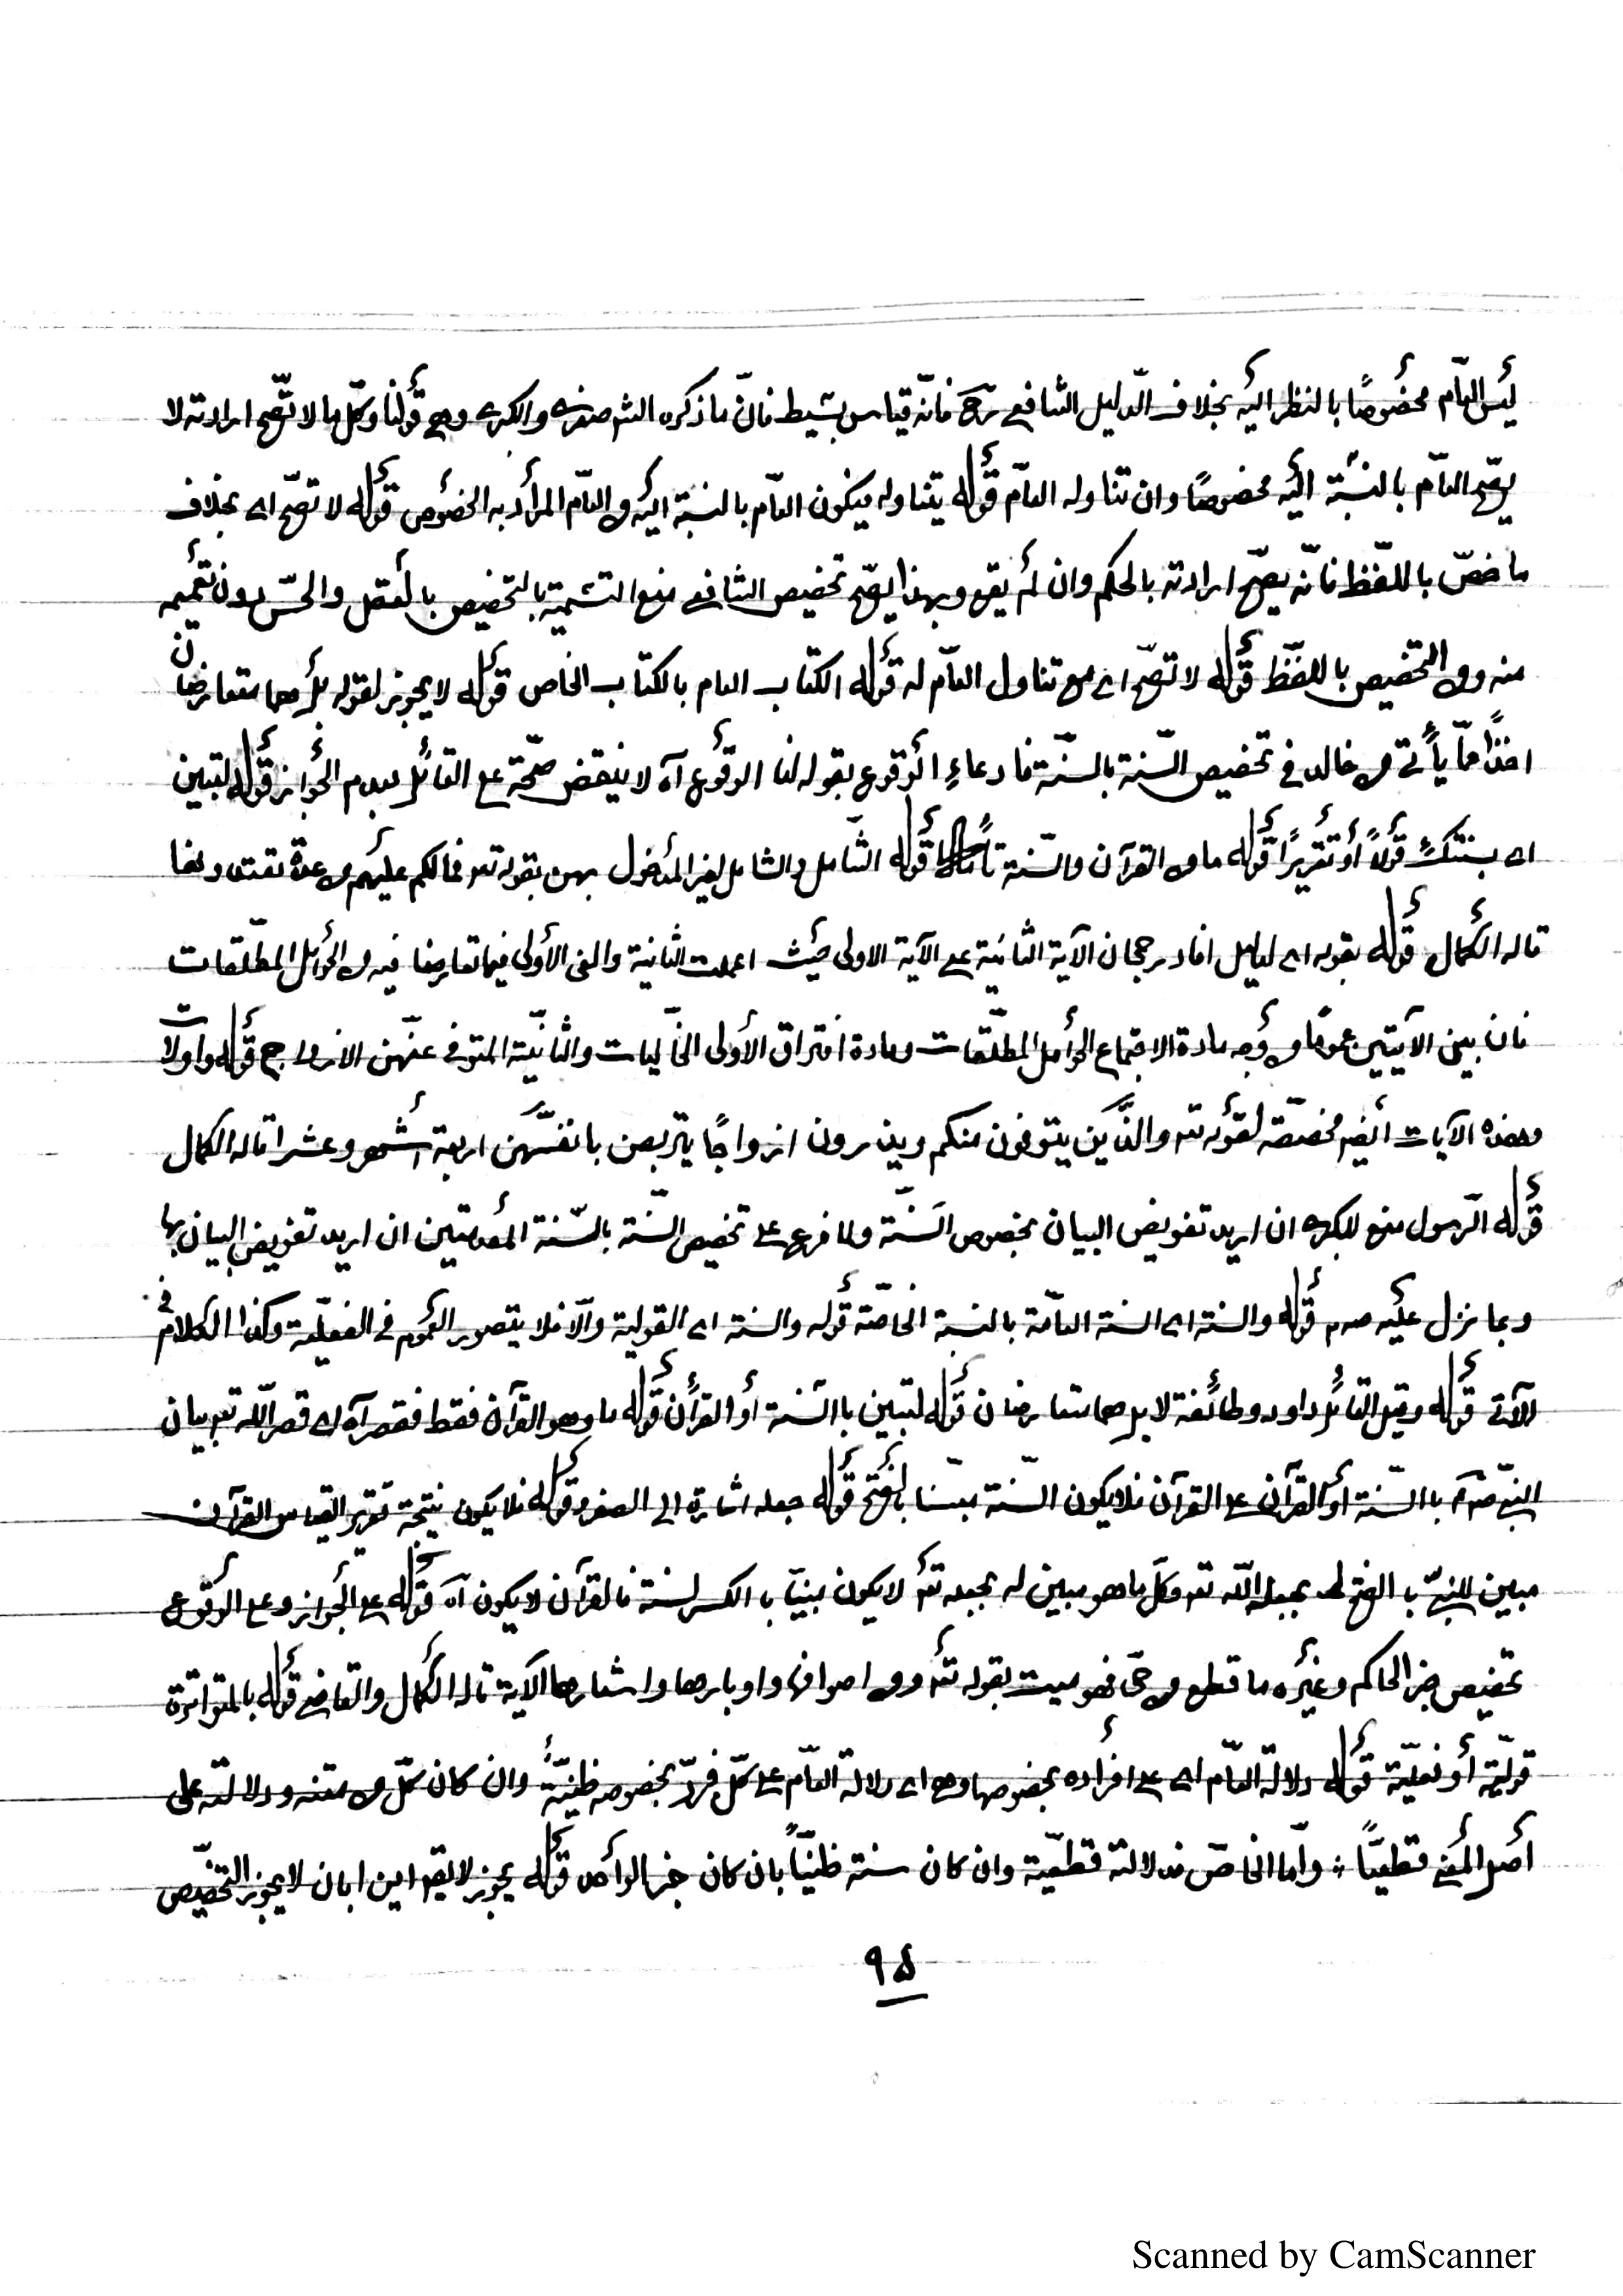 ليس العامّ مخصوصًا بالنظر اليه بخلاف الدّليل الشافعي فانّه قياس بسيط فانّ ما ذكره الشم صغرى والكبرى وهي قولنا وكل ما لا تصّح ارادته لا
يصّح العامّ بالنسبة اليه مخصوصًا وان تناوله العامّ قوله يتناوله فيكون العامّ بالنسبة اليه من العامّ المراد به الخصوص قوله لا تصحّ اى بخلاف
ما خصّ باللفظ فانّه يصحّ ارادته بالحكم وان لم يقع وبهذا يصّح تخصيص الشافعي منع التسمية بالتخصيص بالعقل والحسّ دون تعميمه
منه ومن التخصيص باللفظ قوله لا تصحّ اى مع تناول العامّ له قوله الكتاب العام بالكتاب الخاص قوله لا يجوز لقوله بل هما متعارضان
اخذًا ممّا يأتى من خالد في تخصيص السّنة بالسنّة فادعاء الوقوع بقوله لنا الوقوع آه لا ينقض صحّة على القائل بعدم الجواز قوله لتبين
اى بسنتك قولاً أو تقريرًا قوله ما من القرآن والسّنة قوله الشّامل والشامل لغير المدخول بهن بقوله تعـ فمالكم عليهم من عدة تعتدونها
قاله الكمال قوله بقوله اى لدليل افاد رجحان الآية الثانية على الآية الاولى حيث اعملت الثانية والغى الأولى فيما تعارضا فيه من الحوامل المطلقات
فان بين الآيتين عمومًا من وجه مادة الاجتماع الحوامل المطلّقات ومادة افتراق الأولى الخاليات والثانيّة المتوفى عنهن الازواج قوله واولات
وهذه الآيات ايضـ مخصّصة لقوله تعـ والذّين يتوفون منكم ويذرون ازواجًا يتربصن بانفسهن اربعة أشهر وعشرا قاله الكمال
قوله الرّسول منع للكبرى ان اريد تفويض البيان بخصوص السّنة ولما فرع على تخصيص السّنة بالسّنة المقدمتين ان اريد تفويض البيان بها
وبما نزل عليه صـم قوله والسنة اى السنة العامّة بالسنة الخاصّة قوله والسنة اى القولية والاّ فلا يتصور العموم في الفعليّة وكذا الكلام في
الآتى قوله وقيل القائل داود وطائفة لا بل هما متعارضان قوله لتبين بالسّنة أو القرآن قوله ما وهو القرآن فقط فقصر آه اى قصر اللّه تعـ بيان
النبيّ صـم بالسّنة أو القرآن على القرآن فلا يكون السّنة مبيّنا بالفتح قوله جعله اشارة الى الصغرى قوله فلا يكون نتيجة تقرير القياس القرآن
مبين للنبيّ بالفتح له بجعل اللّه تعـ وكلّ ما هو مبين له بجعله تعـ لا يكون مبيّنا بالكسر لسنة فالقرآن لا يكون آه قوله على الجواز وعلى الوقوع
تخصيص خبر الحاكم وغيره ما قطع من حيّ فهو ميت بقوله تعـ ومن اصوافها واوبارها واشعارها الآية قاله الكمال والقاضي قوله بالمتواترة
قوليّة أو فعليّة قوله دلالة العامّ اى على افراده بخصوصها وهى اى دلالة العامّ على كلّ فرد بخصوصه ظنيّة وان كان كلّ من متنه ودلالته على
أصل المعنى قطعيّاً ؛ وأمّا الخاصّ فدلالته قطعيّة وان كان سنة ظنيّاً بان كان خبر الواحد قوله يجوز لا يقـ ابن ابان لا يجوز التخصّيص
٩٥
Scanned by CamScanner